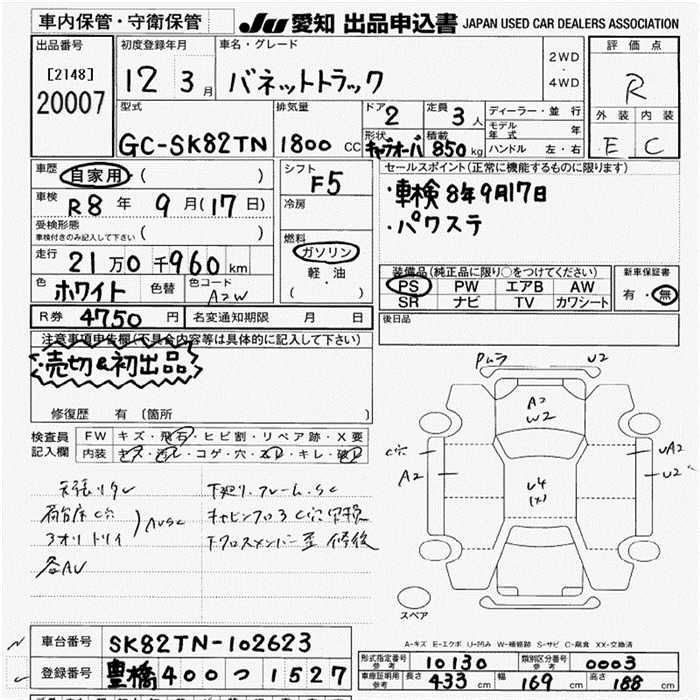 車内保管・守衛保管 JU 愛知 出品申込書 JAPAN USED CAR DEALERS ASSOCIATION
出品番号 初度登録年月 車名・グレード 評価点
[2148] 12 3月 バネットトラック 2WD・4WD R
20007
型式 排気量 ドア 定員 ディーラー・並行 外装 内装
GC-SK82TN 1800 CC 2 3人 モデル年式 年 E C
形状 キャブオーバ 積載 850kg ハンドル 左・右
車歴 自家用 ( ) シフト F5 セールスポイント(正常に機能するものに限ります)
車検 R8年 9月(17日) 冷房 ・車検8年9月17日
受検形態 ( ) ・パワステ
車検付きのみ記入して下さい
走行 21万0千960km 燃料 ガソリン
軽・油
( )
色 ホワイト 色替 色コード A2W
装備品(純正品に限り○をつけてください) 新車保証書
PS PW エアB AW 有・無
SR ナビ TV カワシート
R券 4750円 名変通知期限 月 日 後日品
注意事項申告欄(不具合内容等は具体的に記入して下さい)
・売切&初出品
修復歴 有 〔箇所 〕
検査員 FW キズ・飛石・ヒビ割・リペア跡・X要
記入欄 内装 キズ・汚レ・コゲ・穴・スレ・キレ・破レ
天張リタレ 下廻り、フレーム、SC
荷台床C穴
3オリトリイ AUSC
各AU
Pムラ U2
A2
W2
C穴 UA2
A2 U2
U4
(X)
スペア
A-キズ E-エクボ U-凹み W-補修跡 S-サビ C-腐食 XX-交換済
車台番号 SK82TN-102623
登録番号 豊橋 400 つ 1527
形式指定番号 参考 10130 類別区分番号 参考 0003
車庫証明用 参考 長さ 433cm 幅 169cm 高さ 188cm